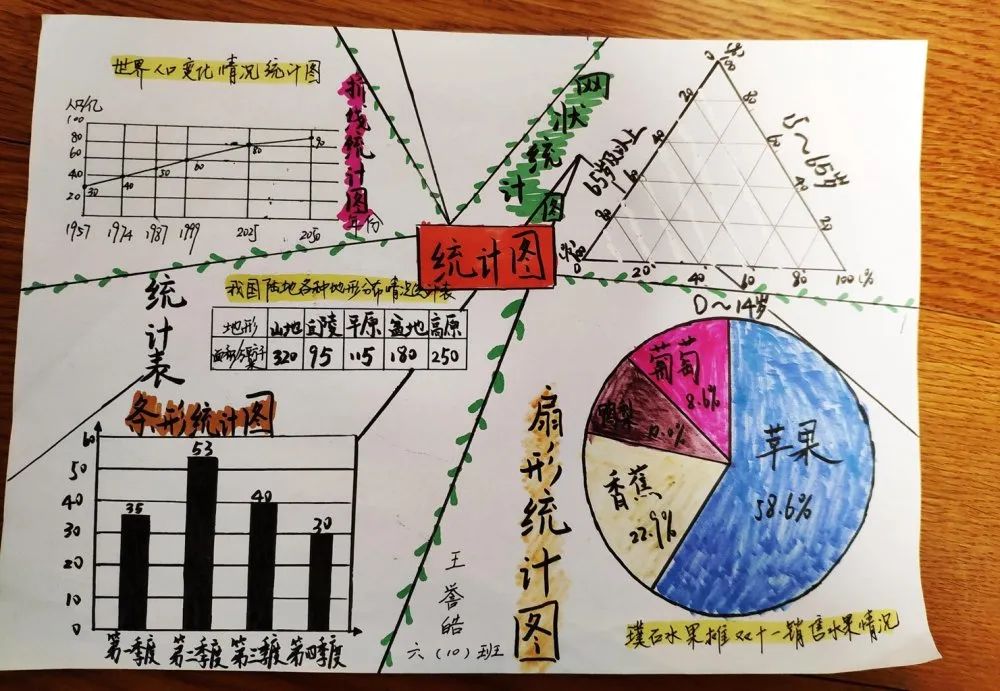 世界人口变化情况统计图
人口/亿
100
80
60
40
20
30 40 50 60 80 90
1957 1974 1987 1999 2025 2050 年份
折线统计图
网状统计图
65岁及以上
15~65岁
0~14岁
0 20 40 60 80 100
20 40 60 80 100
20 40 60 80 100 (%)
统计图
统计表
我国陆地各种地形分布情况统计表
地形 山地 丘陵 平原 盆地 高原
320 95 115 180 250
条形统计图
60
50
40
30
20
10
0
35 53 40 30
第一季度 第二季度 第三季度 第四季度
扇形统计图
葡萄
8.6%
鸭梨
10.0%
香蕉
22.9%
苹果
58.6%
璞石水果摊双十一销售水果情况
王誉皓
六(10)班